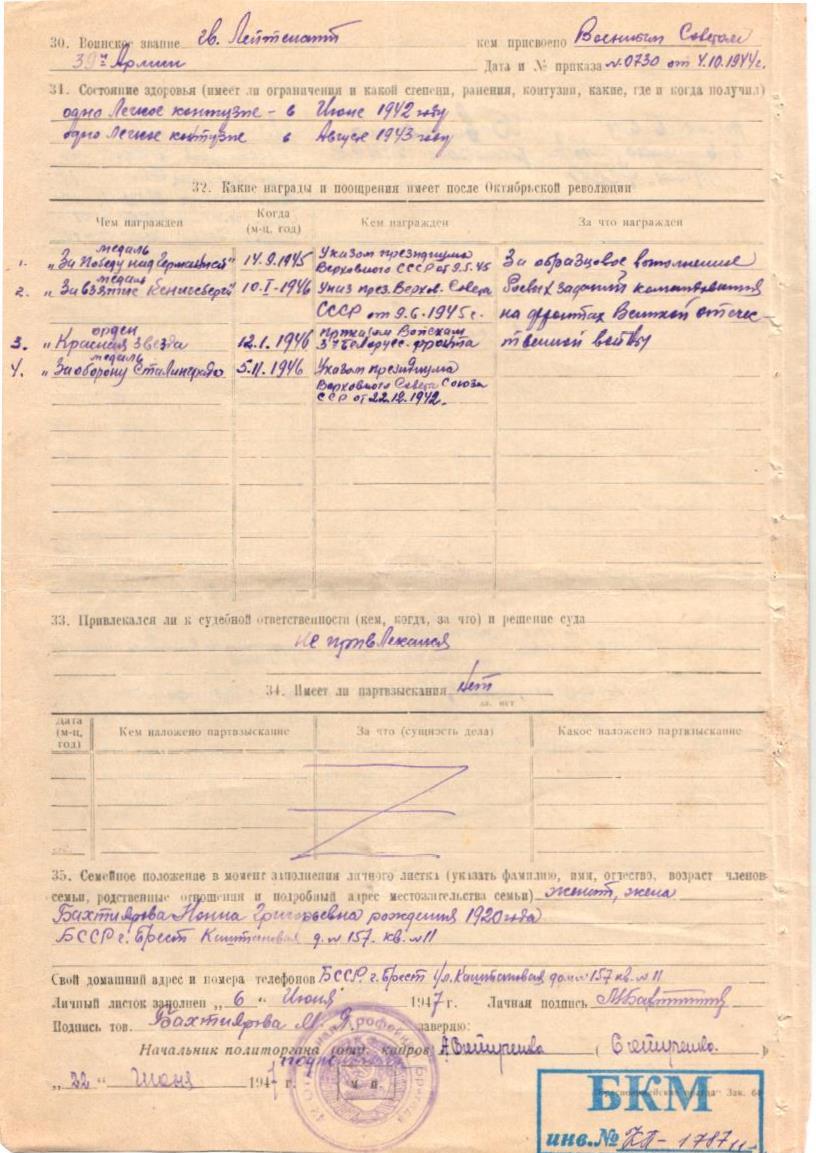 30. Воинское звание гв. Лейтенант кем присвоено Военным Советом
39й Армии Дата и № приказа №0730 от 4.10.1944г.
31. Состояние здоровья (имеет ли ограничения и какой степени, ранения, контузии, какие, где и когда получил)
одно Легкое контузие - в Июне 1942 году
одно Легкое контузие в Августе 1943 году
32. Какие награды и поощрения имеет после Октябрьской революции
Чем награжден Когда (м-ц, год) Кем награжден За что награжден
1. медаль „За Победу над Германией" 14.9.1945 Указом президиума Верховного СССР от 9.5.45 За образцовое выполнение
2. медаль „За взятие Кенигсберга" 10.I-1946 Указ през. Верхов. Совета боевых заданий командования
СССР от 9.6.1945г. на фронтах Великой отече-
3. орден „Красная Звезда 12.1.1946 Приказом Войскам 3го Белорусс. фронта ственной войны
4. медаль „За оборону Сталинграда 5.II.1946 Указом президиума
Верховного Совета Союза
ССР от 22.12.1942.
33. Привлекался ли к судебной ответственности (кем, когда, за что) и решение суда
не привлекался
34. Имеет ли партвзыскания нет
да, нет
Дата (м-ц, год) Кем наложено партвзыскание За что (сущность дела) Какое наложено партвзыскание
35. Семейное положение в момент заполнения личного листка (указать фамилию, имя, отчество, возраст членов
семьи, родственные отношения и подробный адрес местожительства семьи) женат, жена
Бахтиярова Нонна Григорьевна рождения 1920 года
БССР г. Брест Каштановая д. № 157. кв. № 11
Свой домашний адрес и номера телефонов БССР. г. Брест ул. Каштановая дом № 157 кв. № 11
Личный листок заполнен „ 6 " Июня 1947 г. Личная подпись
Подпись тов. Бахтиярова заверяю:
Начальник политоргана (отд. кадров)
„ 22 " Июня 1947 г.
БКМ
инв.№ КП-1787